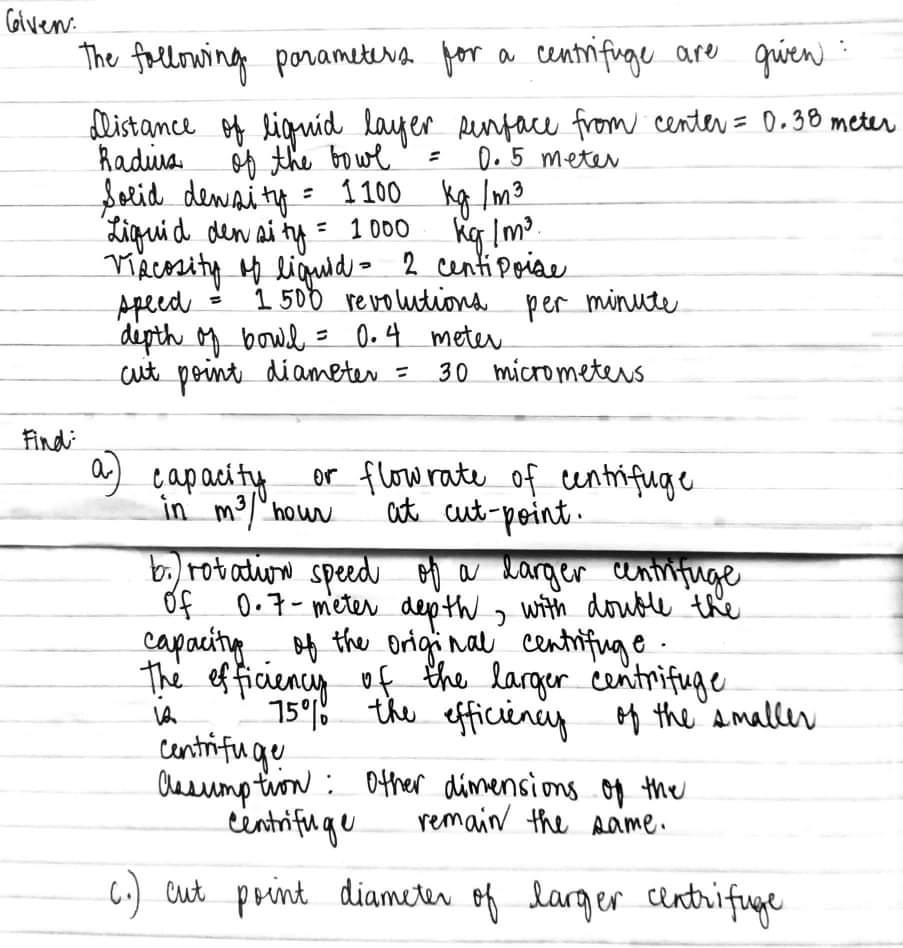 Given:
The following parameters for a centrifuge are given:
Distance of liquid layer surface from center = 0.38 meter
Radius of the bowl = 0.5 meter
Solid density = 1100 kg/m³
Liquid density = 1000 kg/m³.
Viscosity of liquid = 2 centiPoise
speed = 1500 revolutions per minute
depth of bowl = 0.4 meter
cut point diameter = 30 micrometers
Find:
a) capacity or flowrate of centrifuge
in m³/hour at cut-point.
b.) rotation speed of a larger centrifuge
of 0.7-meter depth, with double the
capacity of the original centrifuge.
The efficiency of the larger centrifuge
is 75% the efficiency of the smaller
centrifuge
Assumption: Other dimensions of the
centrifuge remain the same.
c.) cut point diameter of larger centrifuge